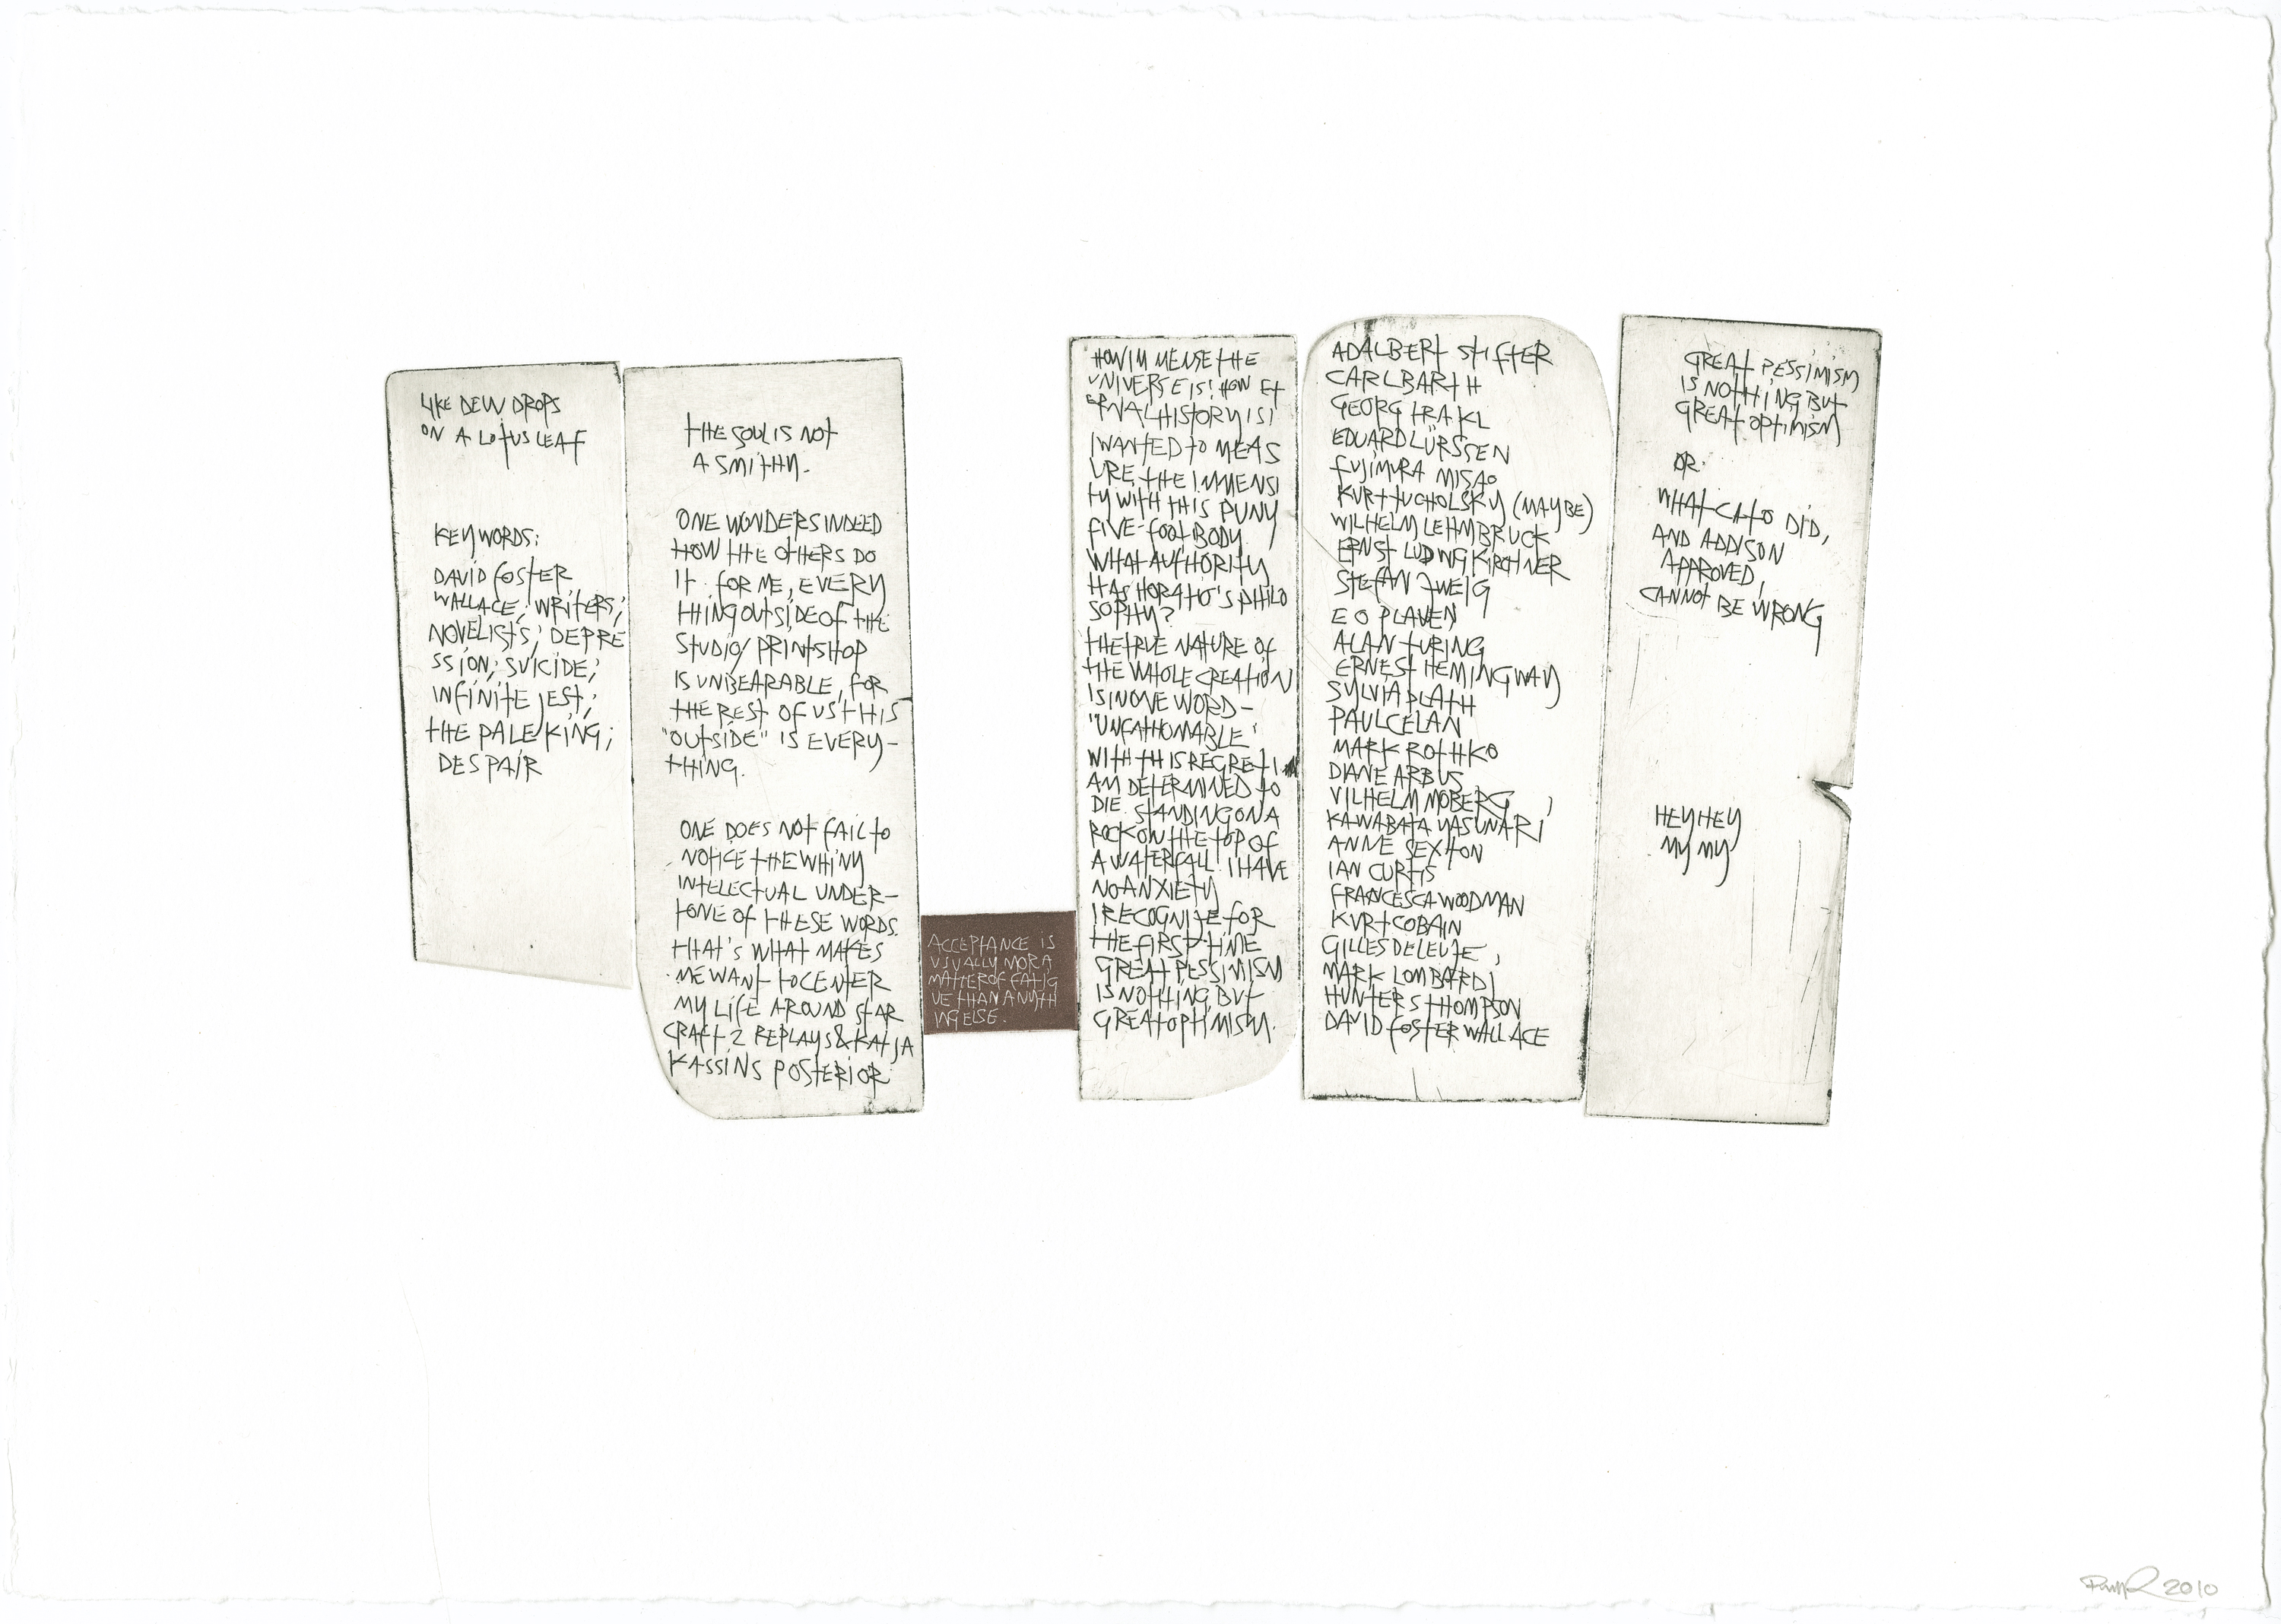 LIKE DEW DROPS
ON A LOTUS LEAF
KEYWORDS:
DAVID FOSTER
WALLACE; WRITERS;
NOVELISTS; DEPRE
SSION; SUICIDE;
INFINITE JEST;
THE PALE KING;
DESPAIR
THE SOUL IS NOT
A SMITHY.
ONE WONDERS INDEED
HOW THE OTHERS DO
IT. FOR ME, EVERY
THING OUTSIDE OF THE
STUDIO/PRINTSHOP
IS UNBEARABLE, FOR
THE REST OF US THIS
"OUTSIDE" IS EVERY-
THING.
ONE DOES NOT FAIL TO
NOTICE THE WHINY
INTELECTUAL UNDER-
TONE OF THESE WORDS.
THAT'S WHAT MAKES
ME WANT TO CENTER
MY LIFE AROUND STAR
CRAFT 2 REPLAYS & KATJA
KASSINS POSTERIOR
ACCEPTANCE IS
USUALLY MOR A
MATTER OF FATIG
UE THAN ANYTH
ING ELSE.
HOW IMMENSE THE
UNIVERSE IS! HOW ET
ERNAL HISTORY IS!
I WANTED TO MEAS
URE THE IMMENSI
TY WITH THIS PUNY
FIVE-FOOT BODY.
WHAT AUTHORITY
HAS HORATIO'S PHILO
SOPHY?
THE TRUE NATURE OF
THE WHOLE CREATION
IS IN ONE WORD -
"UNFATHOMABLE"
WITH THIS REGRET I
AM DETERMINED TO
DIE. STANDING ON A
ROCK ON THE TOP OF
A WATERFALL I HAVE
NO ANXIETY
I RECOGNIZE FOR
THE FIRST TIME
GREAT PESSIMISM
IS NOTHING BUT
GREAT OPTIMISM.
ADALBERT STIFTER
CARL BARTH
GEORG TRAKL
EDUARD LÜRSSEN
FUJIMURA MISAO
KURT TUCHOLSKY (MAYBE)
WILHELM LEHMBRUCK
ERNST LUDWIG KIRCHNER
STEFAN ZWEIG
E O PLAUEN
ALAN TURING
ERNEST HEMINGWAY
SYLVIA PLATH
PAUL CELAN
MARK ROTHKO
DIANE ARBUS
VILHELM MOBERG
KAWABATA YASUNARI
ANNE SEXTON
IAN CURTIS
FRANCESCA WOODMAN
KURT COBAIN
GILLES DELEUZE
MARK LOMBARDI
HUNTER S THOMPSON
DAVID FOSTER WALLACE
GREAT PESSIMISM
IS NOTHING BUT
GREAT OPTIMISM
OR:
WHAT CATO DID,
AND ADDISON
APPROVED,
CANNOT BE WRONG
HEY HEY
MY MY
2010